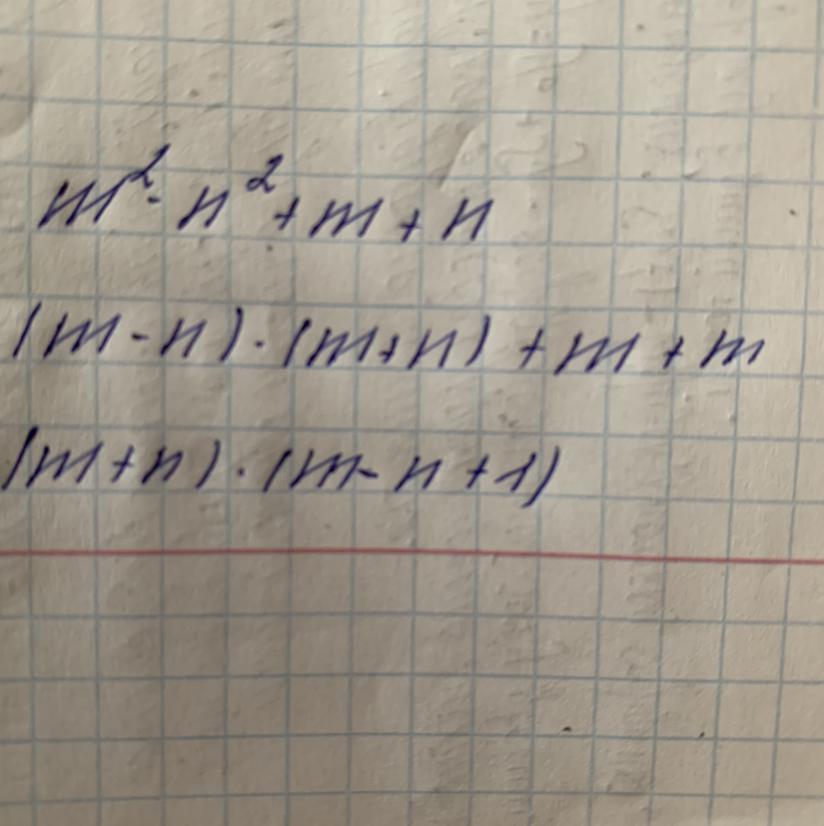 m²- n²+m+n
(m-n)·(m+n)+m+m
(m+n)·(m-n+1)